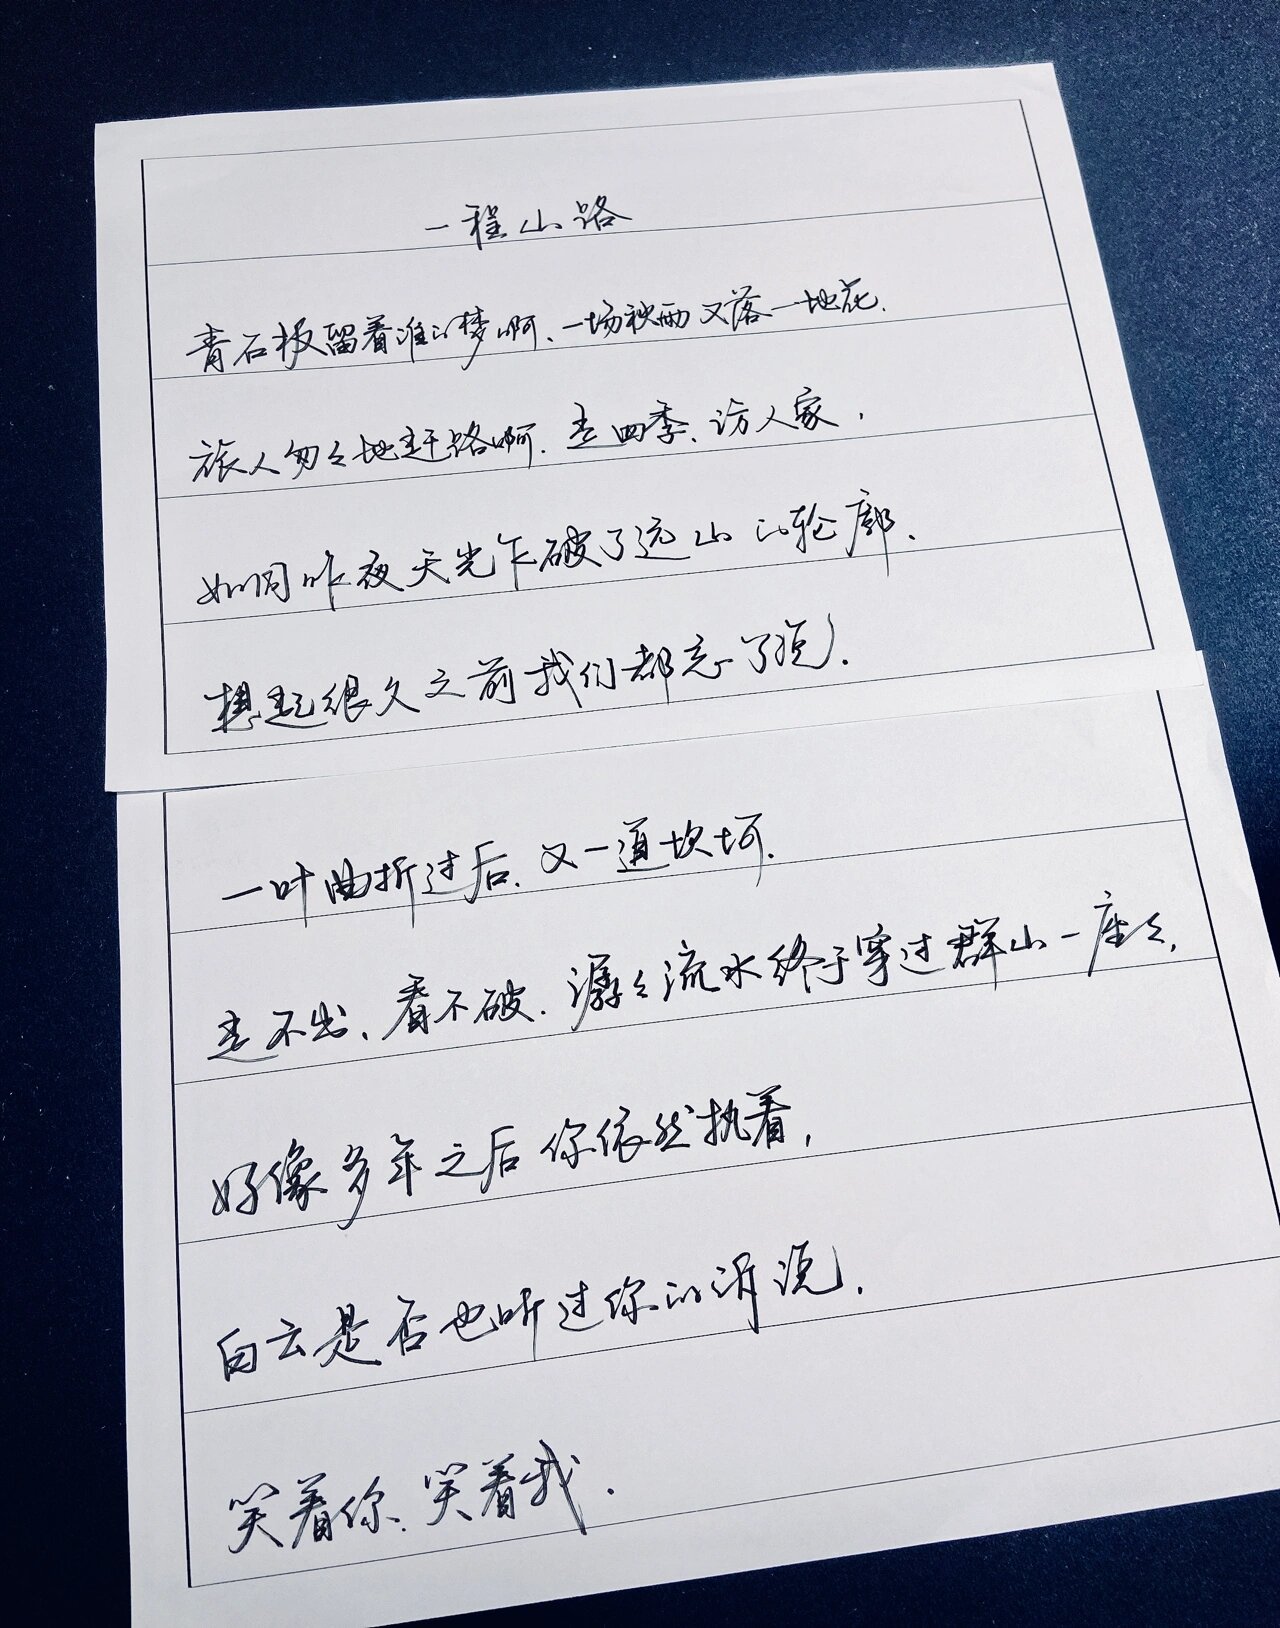 一程山路
青石板留着谁的梦啊、一场秋雨又落一地花.
旅人匆々地赶路啊.走四季、访人家,
如同昨夜天光乍破了远山的轮廓、
想起很久之前我们都忘了说.
一叶曲折过后、又一道坎坷.
走不出、看不破.潺々流水终于穿过群山一座々,
好像多年之后你依然执着,
白云是否也听过你的诉说,
笑着你、笑着我.